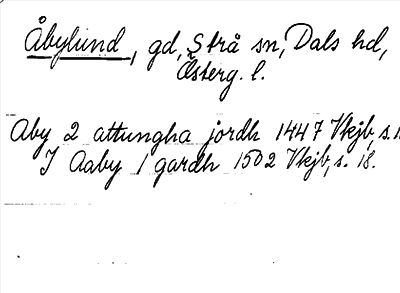 Åbylund, gd, Strå sn, Dals hd,
Österg. l.
Aby 2 attungha jordh 1447 Vkjb, s.
I Aaby 1 gardh 1502 Vkjb, s. 18.